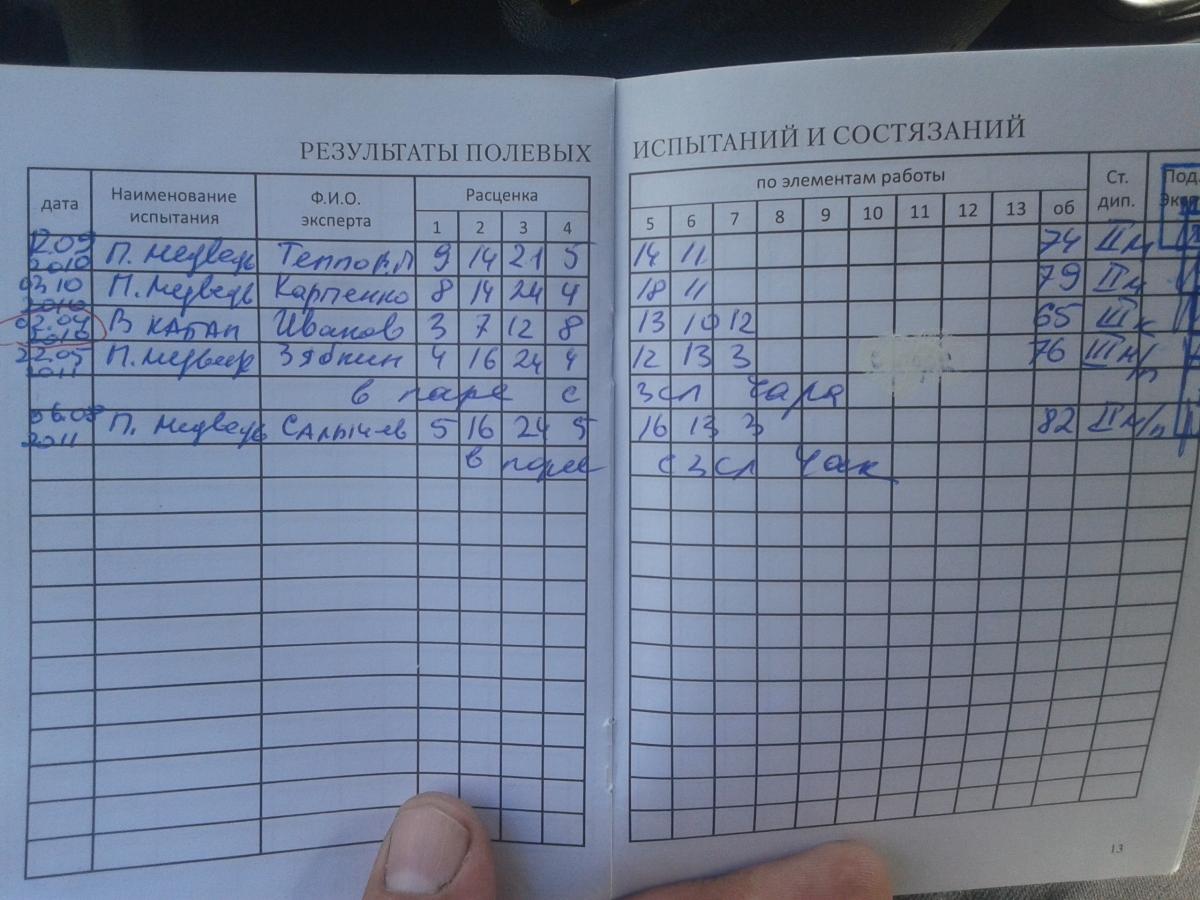 РЕЗУЛЬТАТЫ ПОЛЕВЫХ ИСПЫТАНИЙ И СОСТЯЗАНИЙ
дата Наименование испытания Ф.И.О. эксперта Расценка по элементам работы Ст. дип. Под.
1 2 3 4 5 6 7 8 9 10 11 12 13 об
12.09 2010 П. Медведь 9 14 21 5 14 11 74 II м
03.10 2010 П. Медведь Карпенко 8 14 24 4 18 11 79 II м
В КАБАН Иванов 3 7 12 8 13 10 12 65 III к
22.05 2011 П. Медведь Зябкин 4 16 24 4 12 13 3 76 III м/п
в паре с ЗСЛ Чара
06.08 2011 П. Медведь Салычев 5 16 24 5 16 13 3 82 II м/п
в паре с ЗСЛ Чак
13